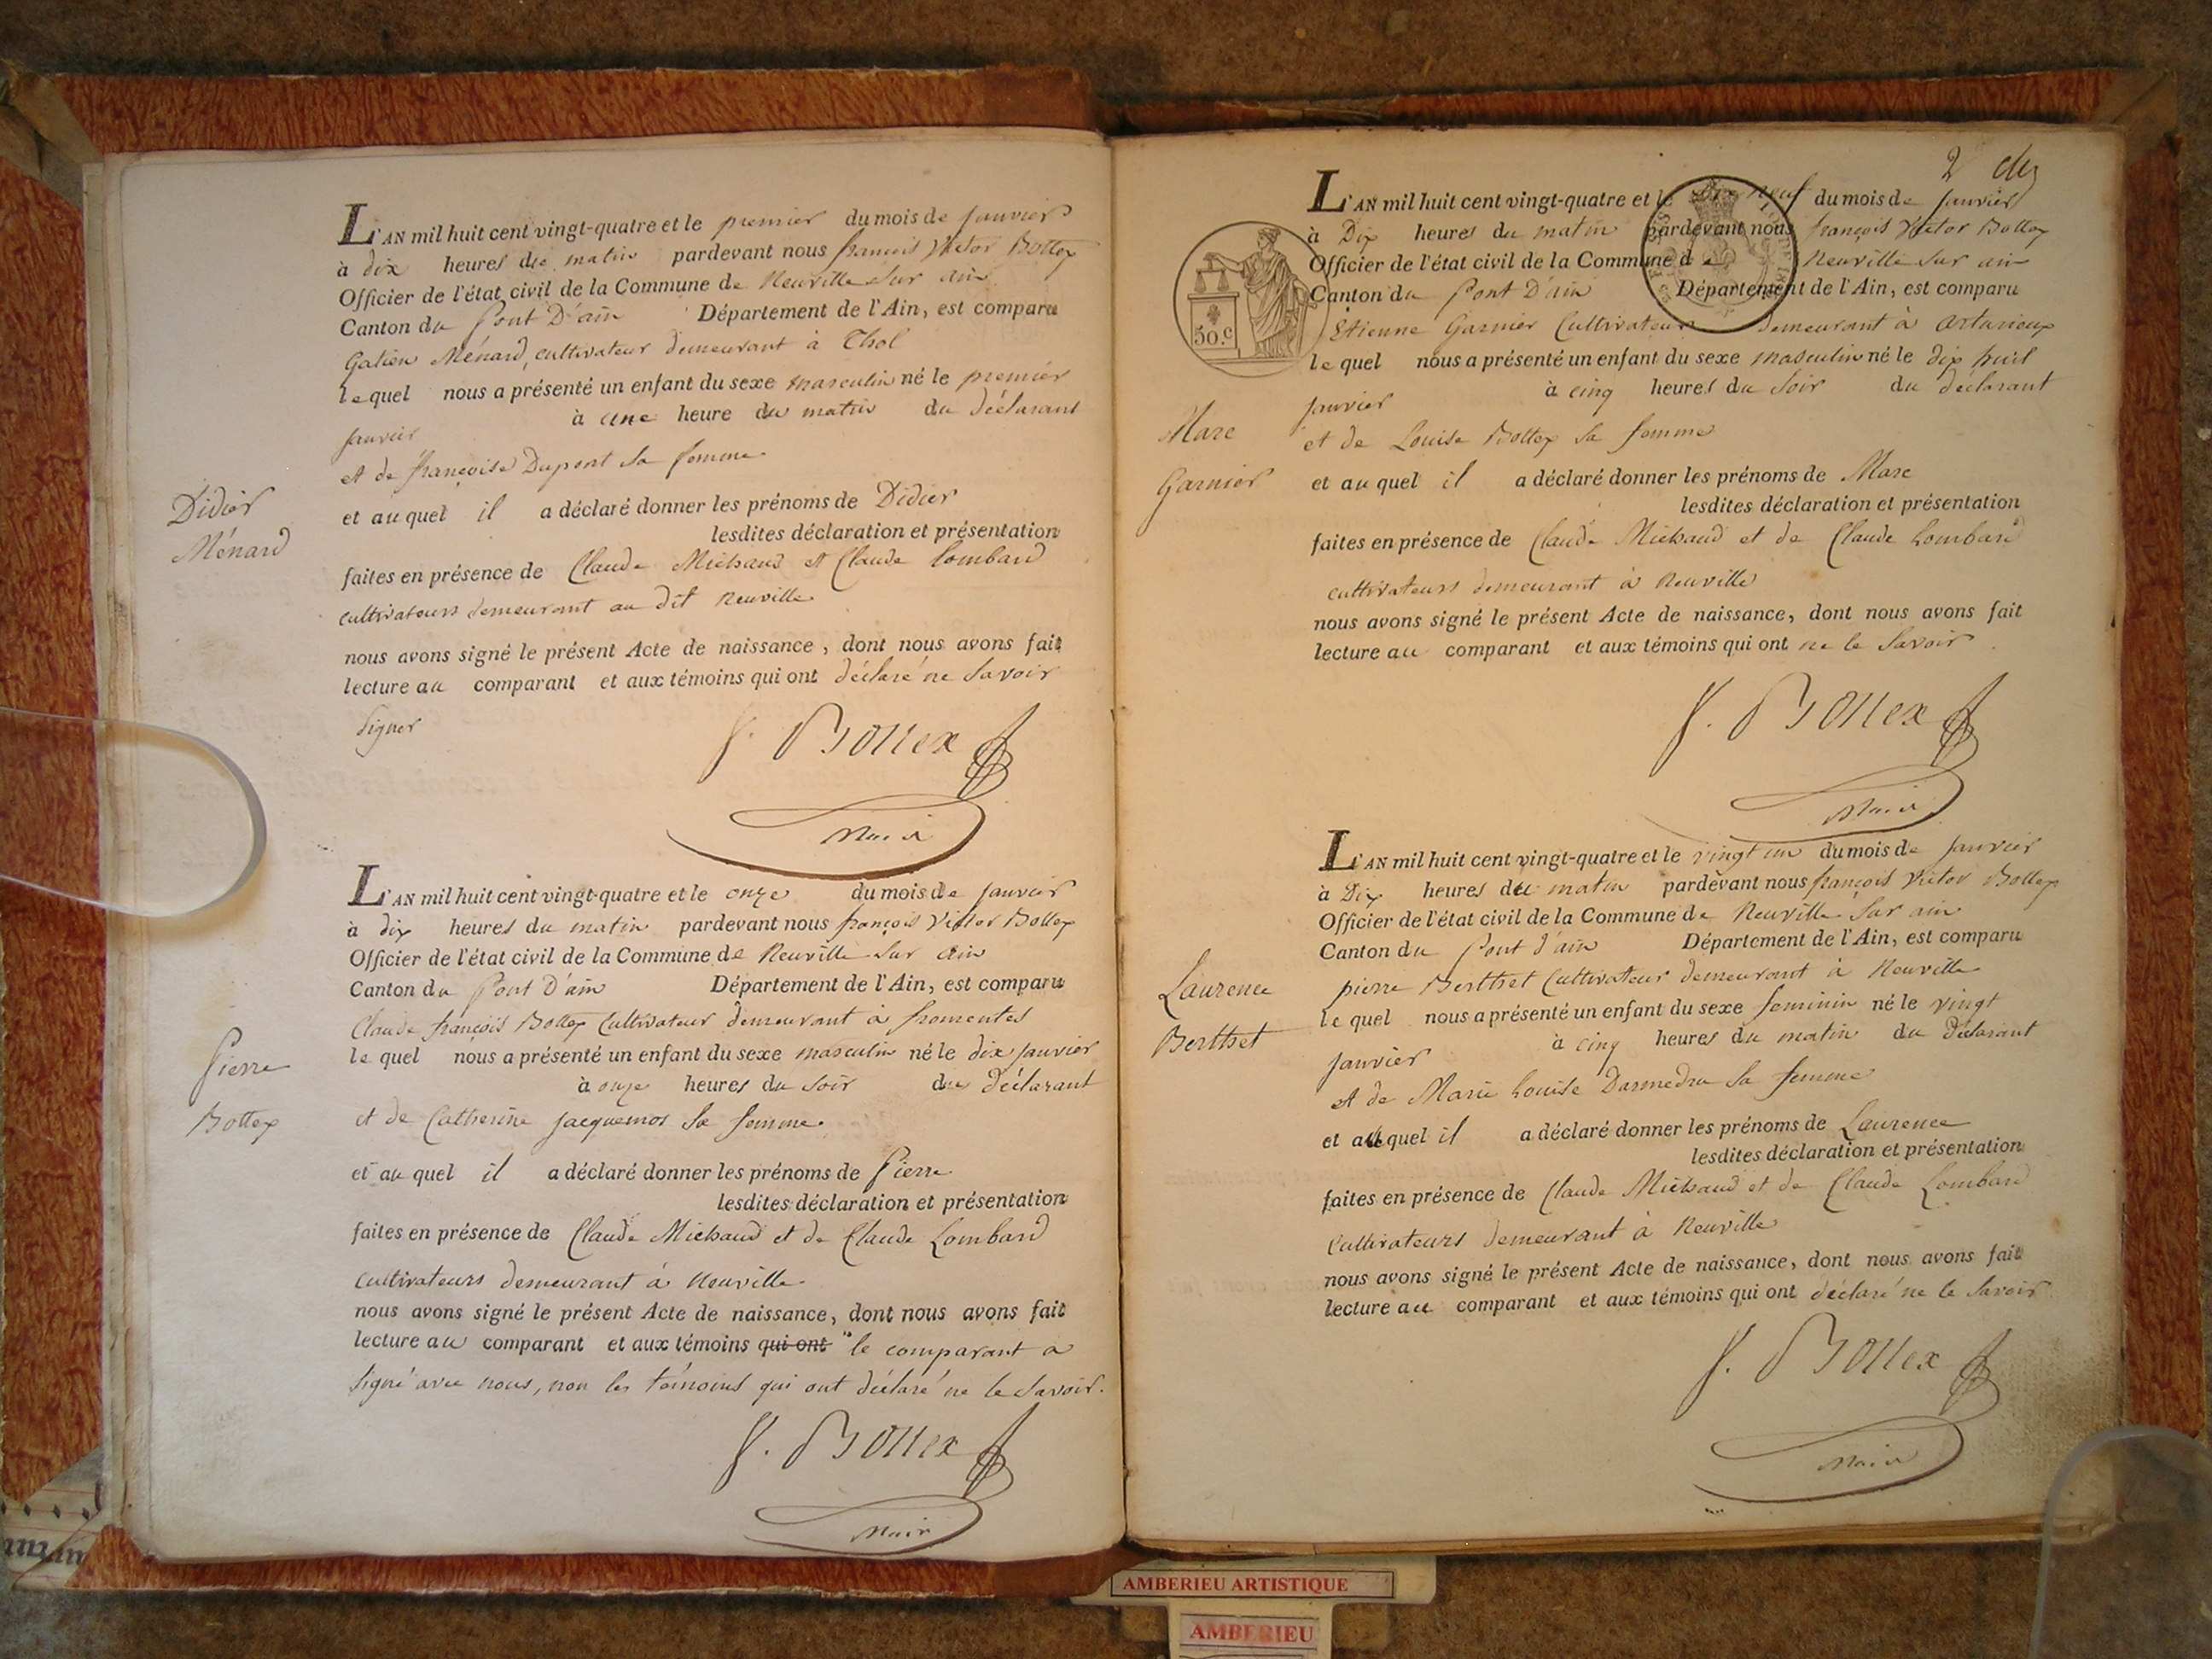 L'AN mil huit cent vingt-quatre et le premier du mois de janvier
à dix heures du matin pardevant nous françois Victor Bottex
Officier de l'état civil de la Commune de Neuville sur ain
Canton du Pont D'ain Département de l'Ain, est comparu
Gatien Ménard, cultivateur demeurant à Thol
lequel nous a présenté un enfant du sexe masculin né le premier
janvier à une heure du matin du déclarant
et de françoise Dupont sa femme
Didier
Ménard
et au quel il a déclaré donner les prénoms de Didier
lesdites déclaration et présentation
faites en présence de Claude Michaud et Claude Lombard
cultivateurs demeurant au dit Neuville
nous avons signé le présent Acte de naissance, dont nous avons fait
lecture au comparant et aux témoins qui ont déclaré ne savoir
signer
f. Bottex
Maire
L'AN mil huit cent vingt-quatre et le onze du mois de janvier
à dix heures du matin pardevant nous françois Victor Bottex
Officier de l'état civil de la Commune de Neuville sur ain
Canton du Pont D'ain Département de l'Ain, est comparu
Claude françois Bottex Cultivateur demeurant à fromentes
le quel nous a présenté un enfant du sexe masculin né le dix janvier
à onze heures du soir du déclarant
Pierre
Bottex
et de Catherine jacquemos sa femme.
et au quel il a déclaré donner les prénoms de Pierre
lesdites déclaration et présentation
faites en présence de Claude Michaud et de Claude Lombard
cultivateurs demeurant à Neuville
nous avons signé le présent Acte de naissance, dont nous avons fait
lecture au comparant et aux témoins qui ont " le comparant a
signé avec nous, non les témoins qui ont déclaré ne le savoir.
f. Bottex
Maire
2
L'AN mil huit cent vingt-quatre et le dix neuf du mois de janvier
à Dix heures du matin pardevant nous françois Victor Bottex
Officier de l'état civil de la Commune de Neuville sur ain
Canton du Pont D'ain Département de l'Ain, est comparu
50.c
Etienne Garnier Cultivateur demeurant à artarieux
le quel nous a présenté un enfant du sexe masculin né le dix huit
janvier à cinq heures du soir du déclarant
et de Louise Bottex sa femme
Marc
Garnier
et au quel il a déclaré donner les prénoms de Marc
lesdites déclaration et présentation
faites en présence de Claude Michaud et de Claude Lombard
cultivateurs demeurant à Neuville
nous avons signé le présent Acte de naissance, dont nous avons fait
lecture au comparant et aux témoins qui ont ne le savoir
f. Bottex
Maire
L'AN mil huit cent vingt-quatre et le vingt un du mois de janvier
à Dix heures du matin pardevant nous françois Victor Bottex
Officier de l'état civil de la Commune de Neuville sur ain
Canton du Pont d'ain Département de l'Ain, est comparu
pierre Berthet Cultivateur demeurant à Neuville
Laurence
Berthet
le quel nous a présenté un enfant du sexe feminin né le vingt
janvier à cinq heures du matin du déclarant
et de Marie Louise Darmedru sa femme
et au quel il a déclaré donner les prénoms de Laurence
lesdites déclaration et présentation
faites en présence de Claude Michaud et de Claude Lombard
Cultivateurs demeurant à Neuville
nous avons signé le présent Acte de naissance, dont nous avons fait
lecture au comparant et aux témoins qui ont déclaré ne le savoir
f. Bottex
Maire
AMBERIEU ARTISTIQUE
AMBERIEU